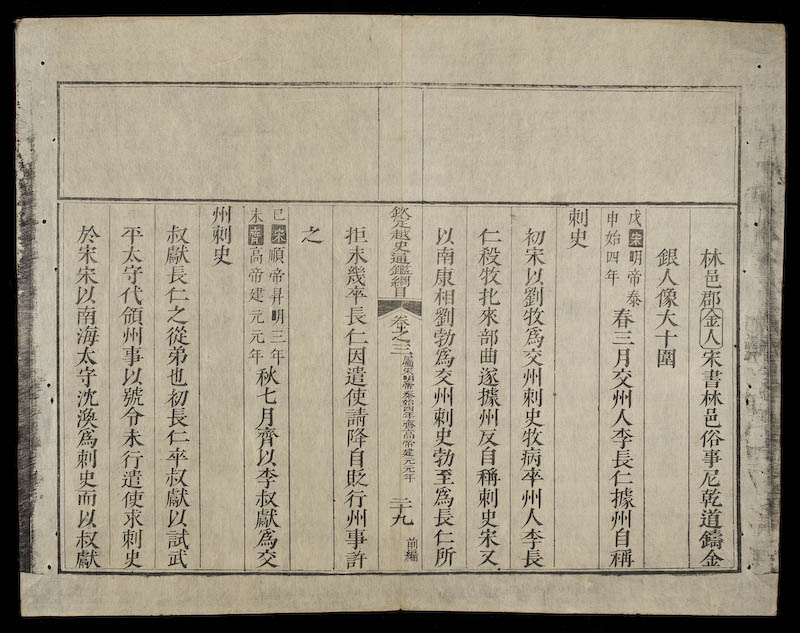 林邑郡金人宋書林邑俗事尼乾道鑄金
銀人像大十圍
戊宋明帝泰
申始四年
春三月交州人李長仁據州自稱
刺史
初宋以劉牧爲交州刺史牧病卒州人李長
仁殺牧北來部曲遂據州反自稱刺史宋又
以南康相劉勃爲交州刺史勃至爲長仁所
欽定越史通鑑綱目
卷之三
屬宋明帝泰始四年齊高帝建元元年
二十九
前編
拒未幾卒長仁因遣使請降自貶行州事許
之
己宋順帝昇明三年
未齊高帝建元元年
秋七月齊以李叔獻爲交
州刺史
叔獻長仁之從弟也初長仁卒叔獻以試武
平太守代領州事以號令未行遣使求刺史
於宋宋以南海太守沈渙爲刺史而以叔獻